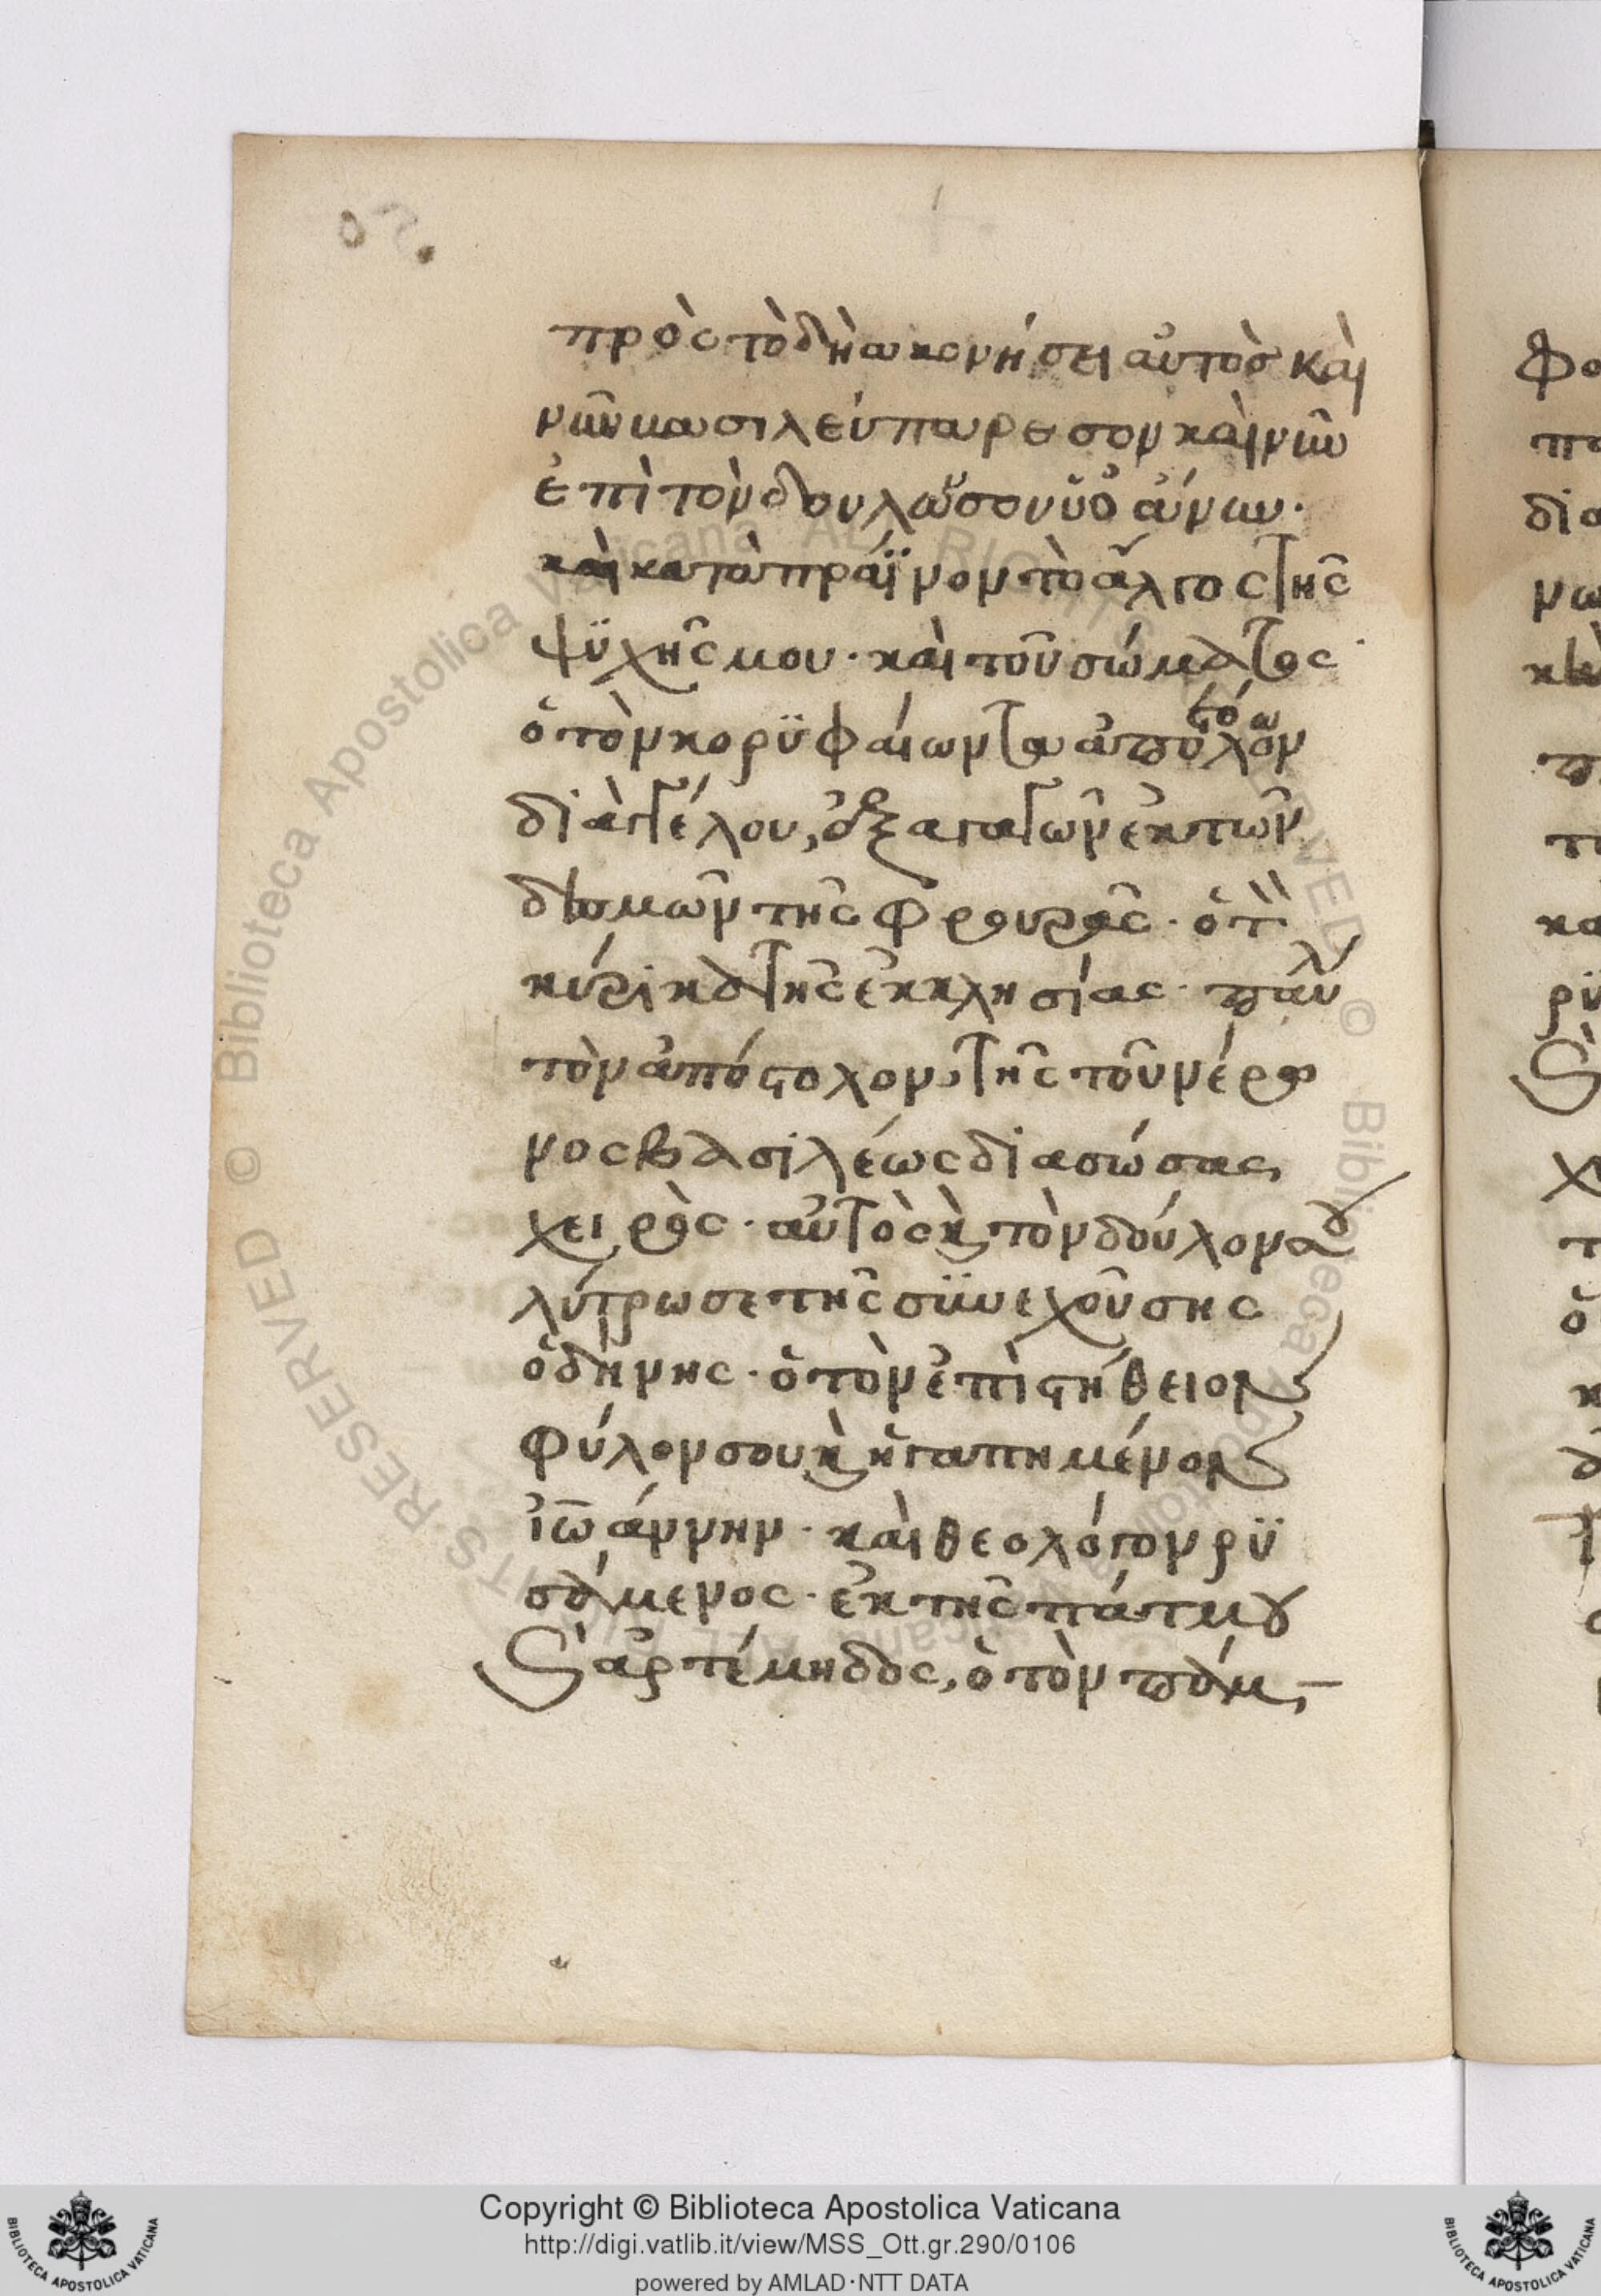 πρὸς τὸ δηακονήσει αὐτὸς καὶ
νῦν βασιλεύ παρεσον καὶ νῦν
ἐπὶ τὸν δουλωσου
καὶ καταπράϋνον τὸ ἄλγος τῆς
ψϋχῆς μου · καὶ τοῦ σώματος
ὁ τὸν κορϋφαίων
διὰ ἀγγέλου, ἐξαγαγων ἐκ τῶν
δεσμῶν τῆς φρουρᾶς · ὁ τὸν
κύρικα τῆς ἐκκλησίας · παῦλ
τὸν ἀπόστολον, τῆς τοῦ νέρω
νος βασιλέως διασώσας
χειρὸς · αὐτὸς κὴ τὸν δούλον σου
λύτρωσε τῆς σϋνεχοῦσης
ὀδήνης · ὁ τὸν ἐπιστήθειον
φύλον σου κὴ ἠγαπημένον
ἰωάννην · καὶ θεολόγον ρϋ
σάμενος · ἐκ τῆς πάτμου
κὴ ἀρτέμηδος, ὁ τὸν παμ
Copyright © Biblioteca Apostolica Vaticana
http://digi.vatlib.it/view/MSS_Ott.gr.290/0106
powered by AMLAD·NTT DATA
BIBLIOTECA APOSTOLICA VATICANA
BIBLIOTECA APOSTOLICA VATICANA